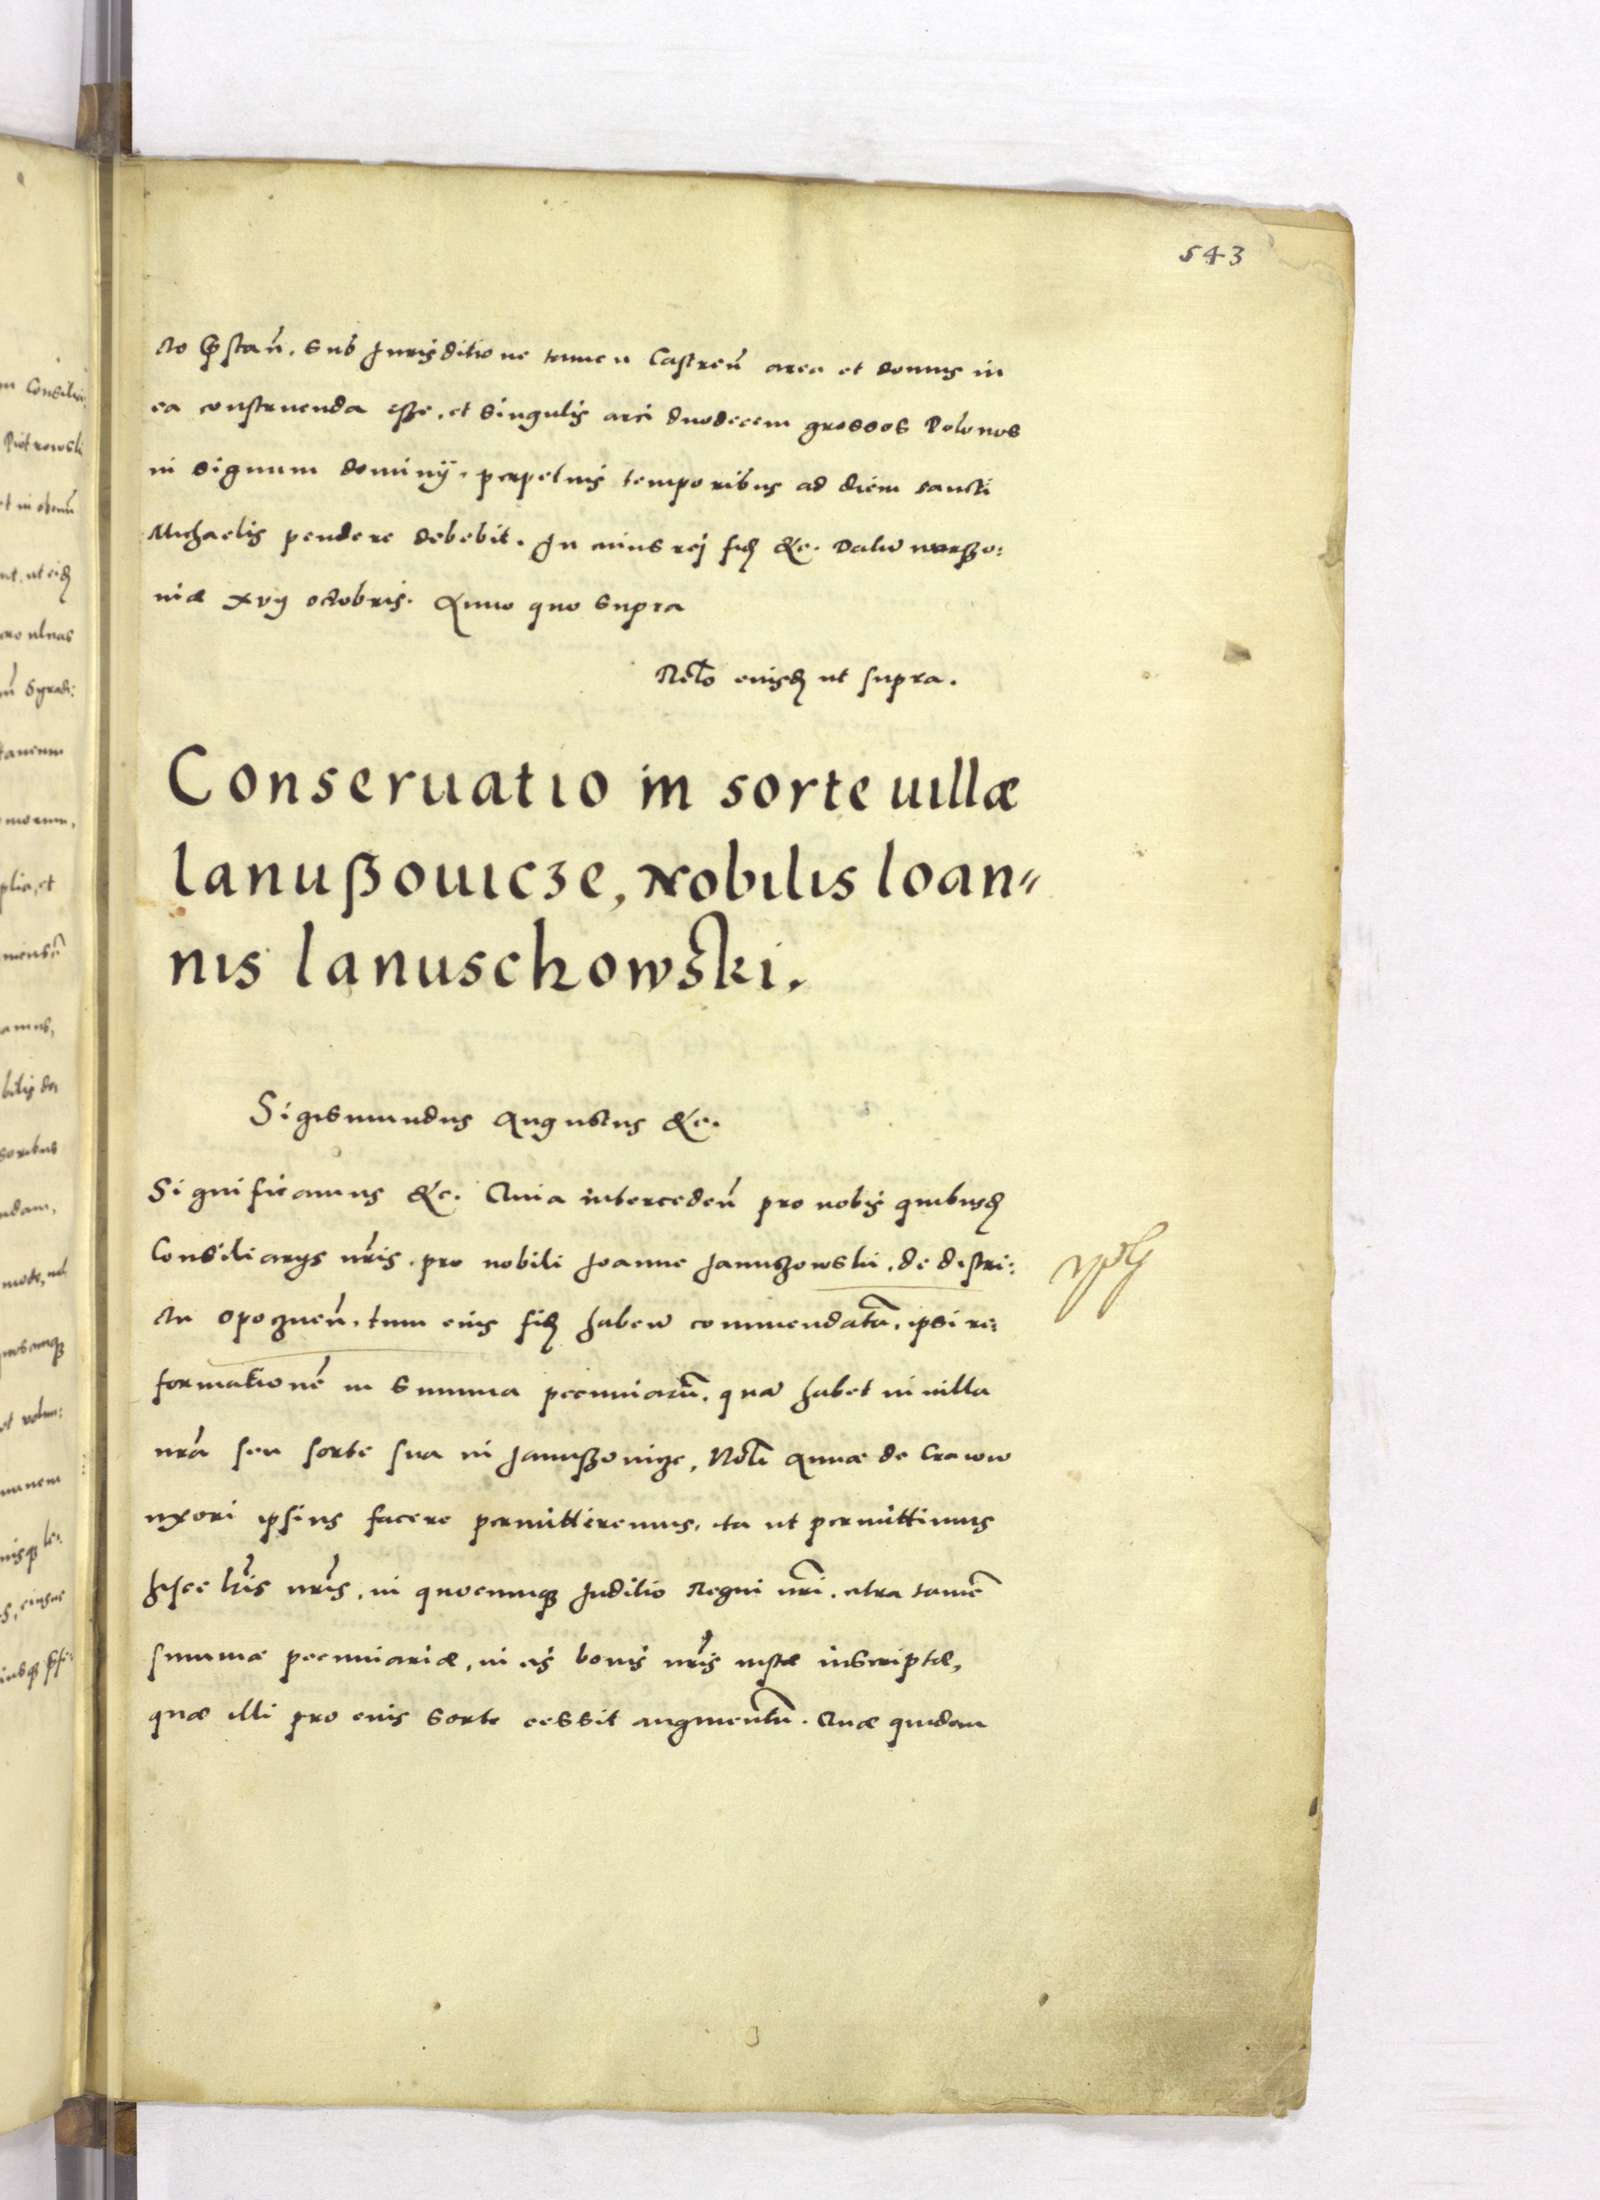 543
sub Jurisditione tamen Castreñ area et domus in
ea construenda esse, et singulis arci duodecem grossos Polonos
in signum dominij, perpetuis temporibus ad diem sancti
Michaelis pendere debebit. In cuius rej &c. Datu warszo:
uiæ xvij octobris. Anno quo supra
Relõ eiusdē ut supra.
Conseruatio in sorte uillæ
Ianußouicze, Nobilis Ioan=
nis Ianuschowski.
Sigismundus Augustus &c.
Significamus &c. Quia intercedeñ pro nobis quibusdē
Consiliarijs nr̃is, pro nobili Joanne Januszowski, de distri:
ctu opoczneñ, tum eius haben commendatã, ipsi re:
formationẽ in summa pecuniarũ, quã habet in uilla
nrã seu sorte sua in Janußouicze, Nobli Annæ de
uxori ipsius facere permitteremus, ita ut permittimus
hisce lr̃is nr̃is, in quocumq; Juditio Regni nr̃i, citra tamẽ
summæ pecuniariæ, in eis bonis nr̃is iuste inscriptæ,
quæ illi pro eius sorte cessit augmentũ. Quæ quidem